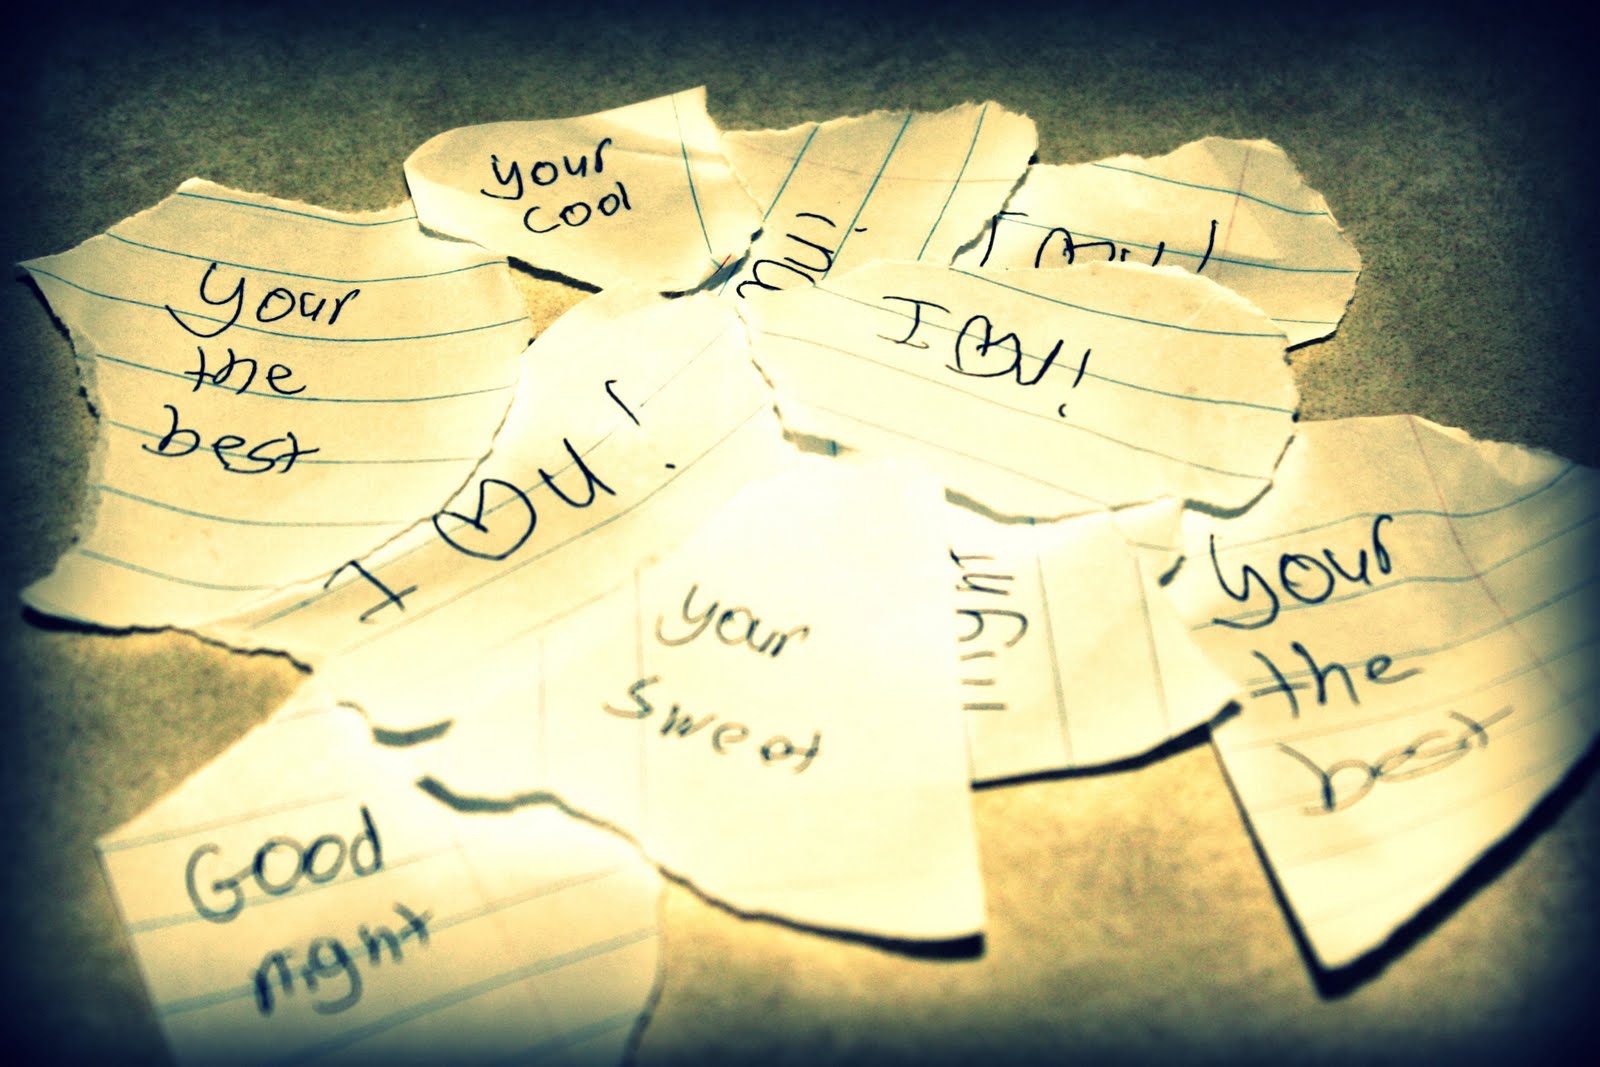 your
cool
U!
I ♡ U!
I ♡ U!
your
the
best
I ♡ U!
your
sweet
night
your
the
best
Good
night